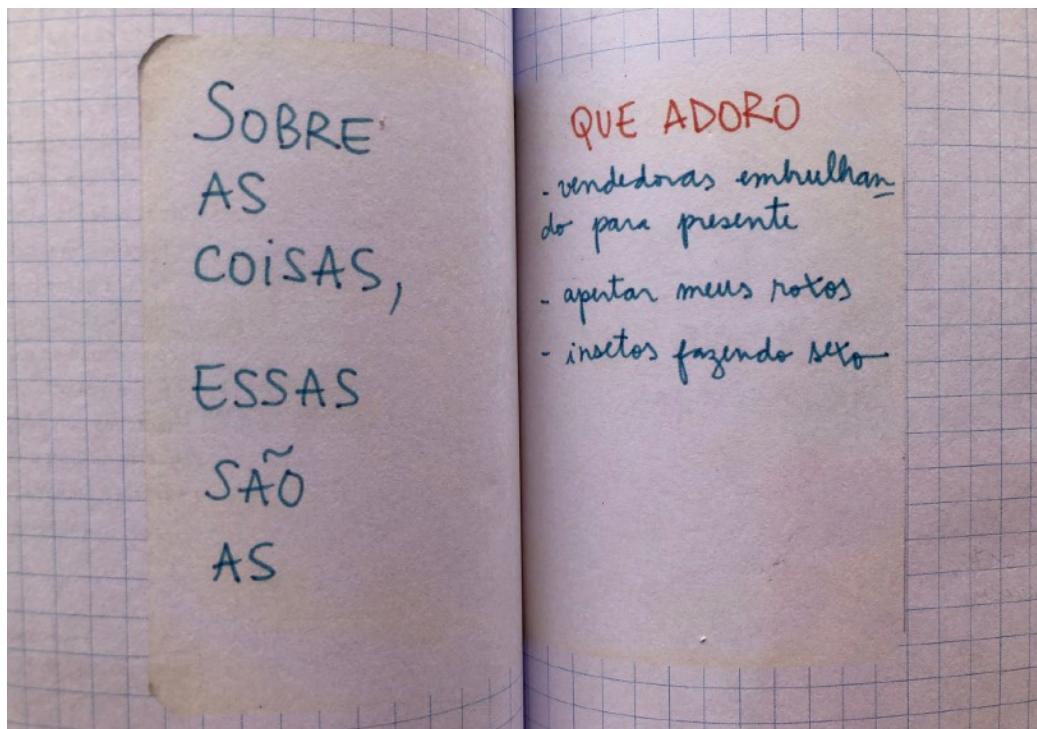 SOBRE
AS
COiSAS,
ESSAS
SÃO
AS
QUE ADORO
- vendedoras embrulhan
do para presente
- apertar meus roxos
- insetos fazendo sexo